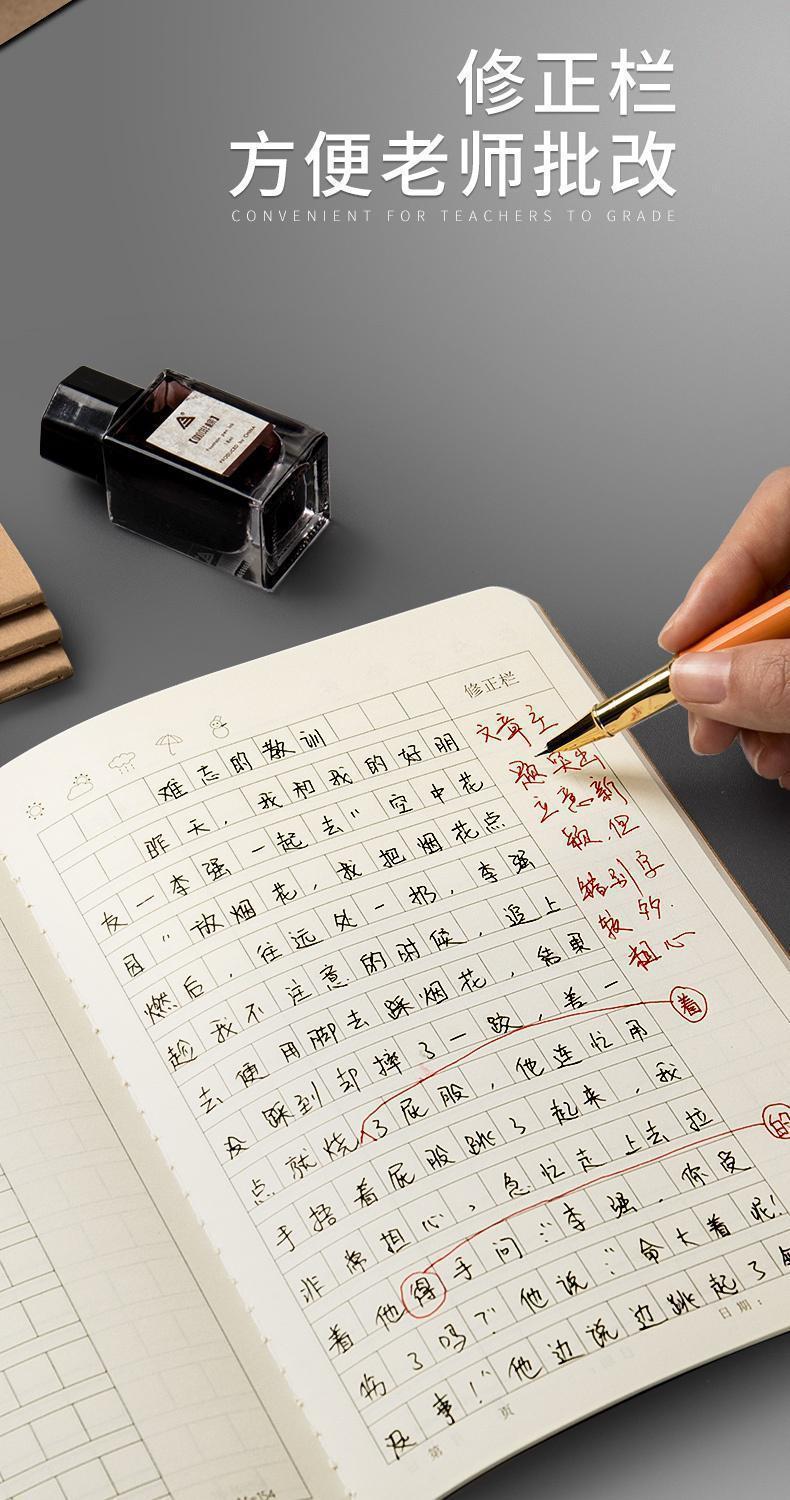 修正栏
方便老师批改
CONVENIENT FOR TEACHERS TO GRADE
fountain pen ink
PRODUCED by CHINA
修正栏
难忘的教训
昨天,我和我的好朋
友一李强一起去"空中花
园"放烟花,我把烟花点
燃后,往远处一扔,李强
趁我不注意的时候,追上
去便用脚去踩烟花,结果
没踩到却摔了一跤,差一
点就烧了屁股,他连忙用
手捂着屁股跳了起来,我
非常担心,急忙走上去拉
着他得手问:"李强,你受
伤了吗?"他说:"命大着呢!
没事!"他边说边跳起了
文章主
题突出
立意新
颖,但
错别字
较多.
粗心
着
的
第 页
日期: